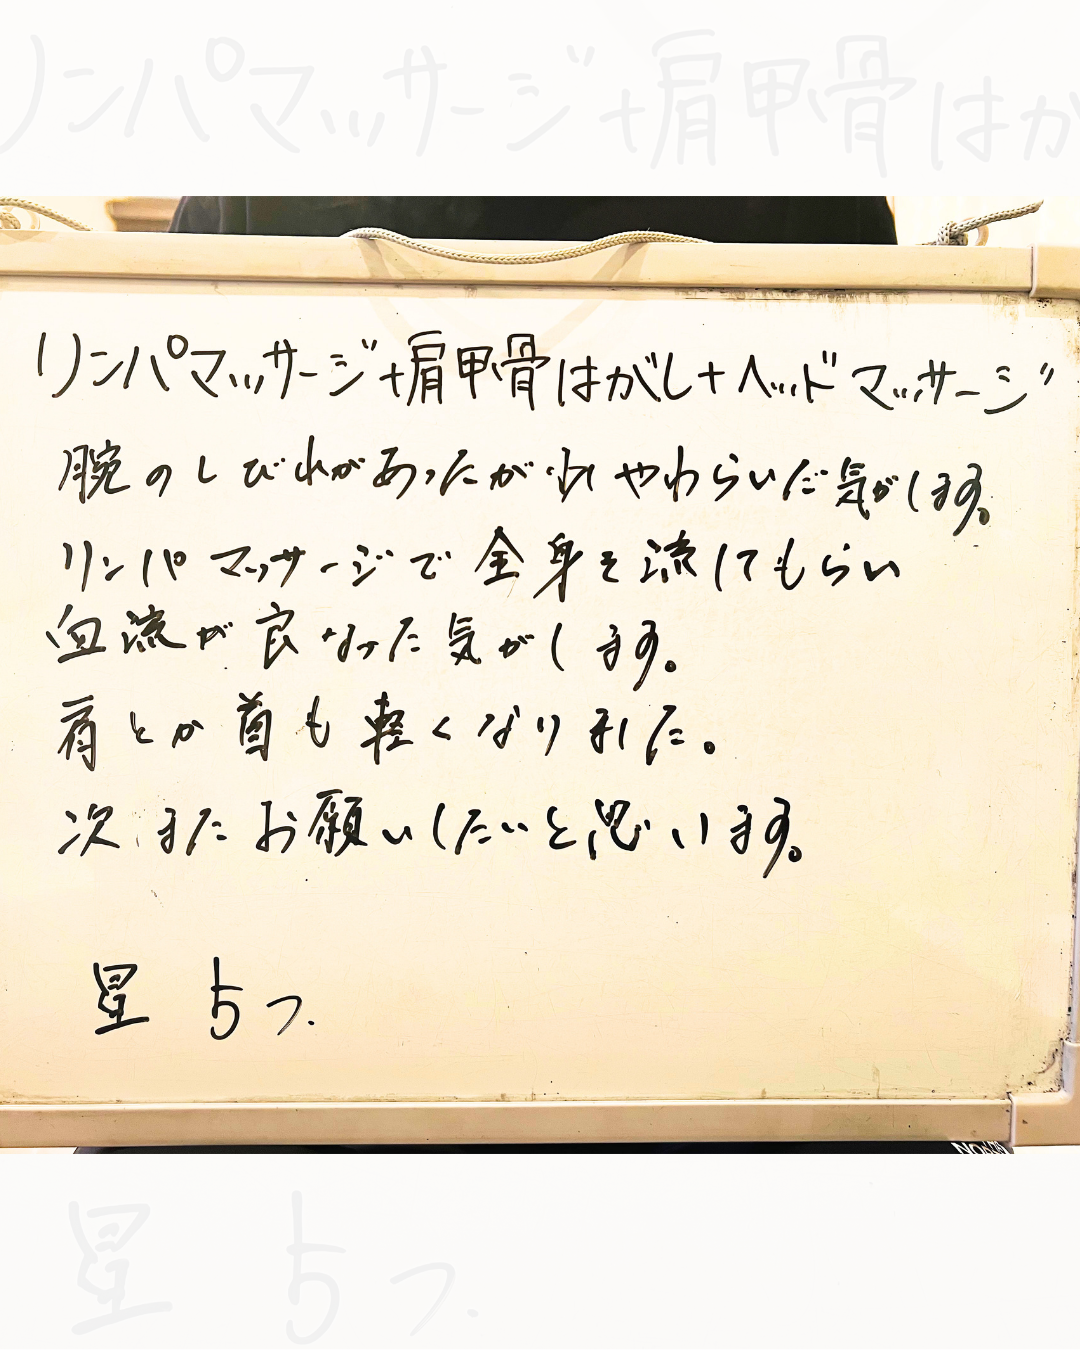 リンパマッサージ+肩甲骨はがし
リンパマッサージ+肩甲骨はがし+ヘッドマッサージ
腕のしびれがあったがやわらいだ気がします。
リンパマッサージで全身を流してもらい
血流が良なった気がします。
肩とか首も軽くなりました。
次またお願いしたいと思います。
星 5つ.
星 5つ.